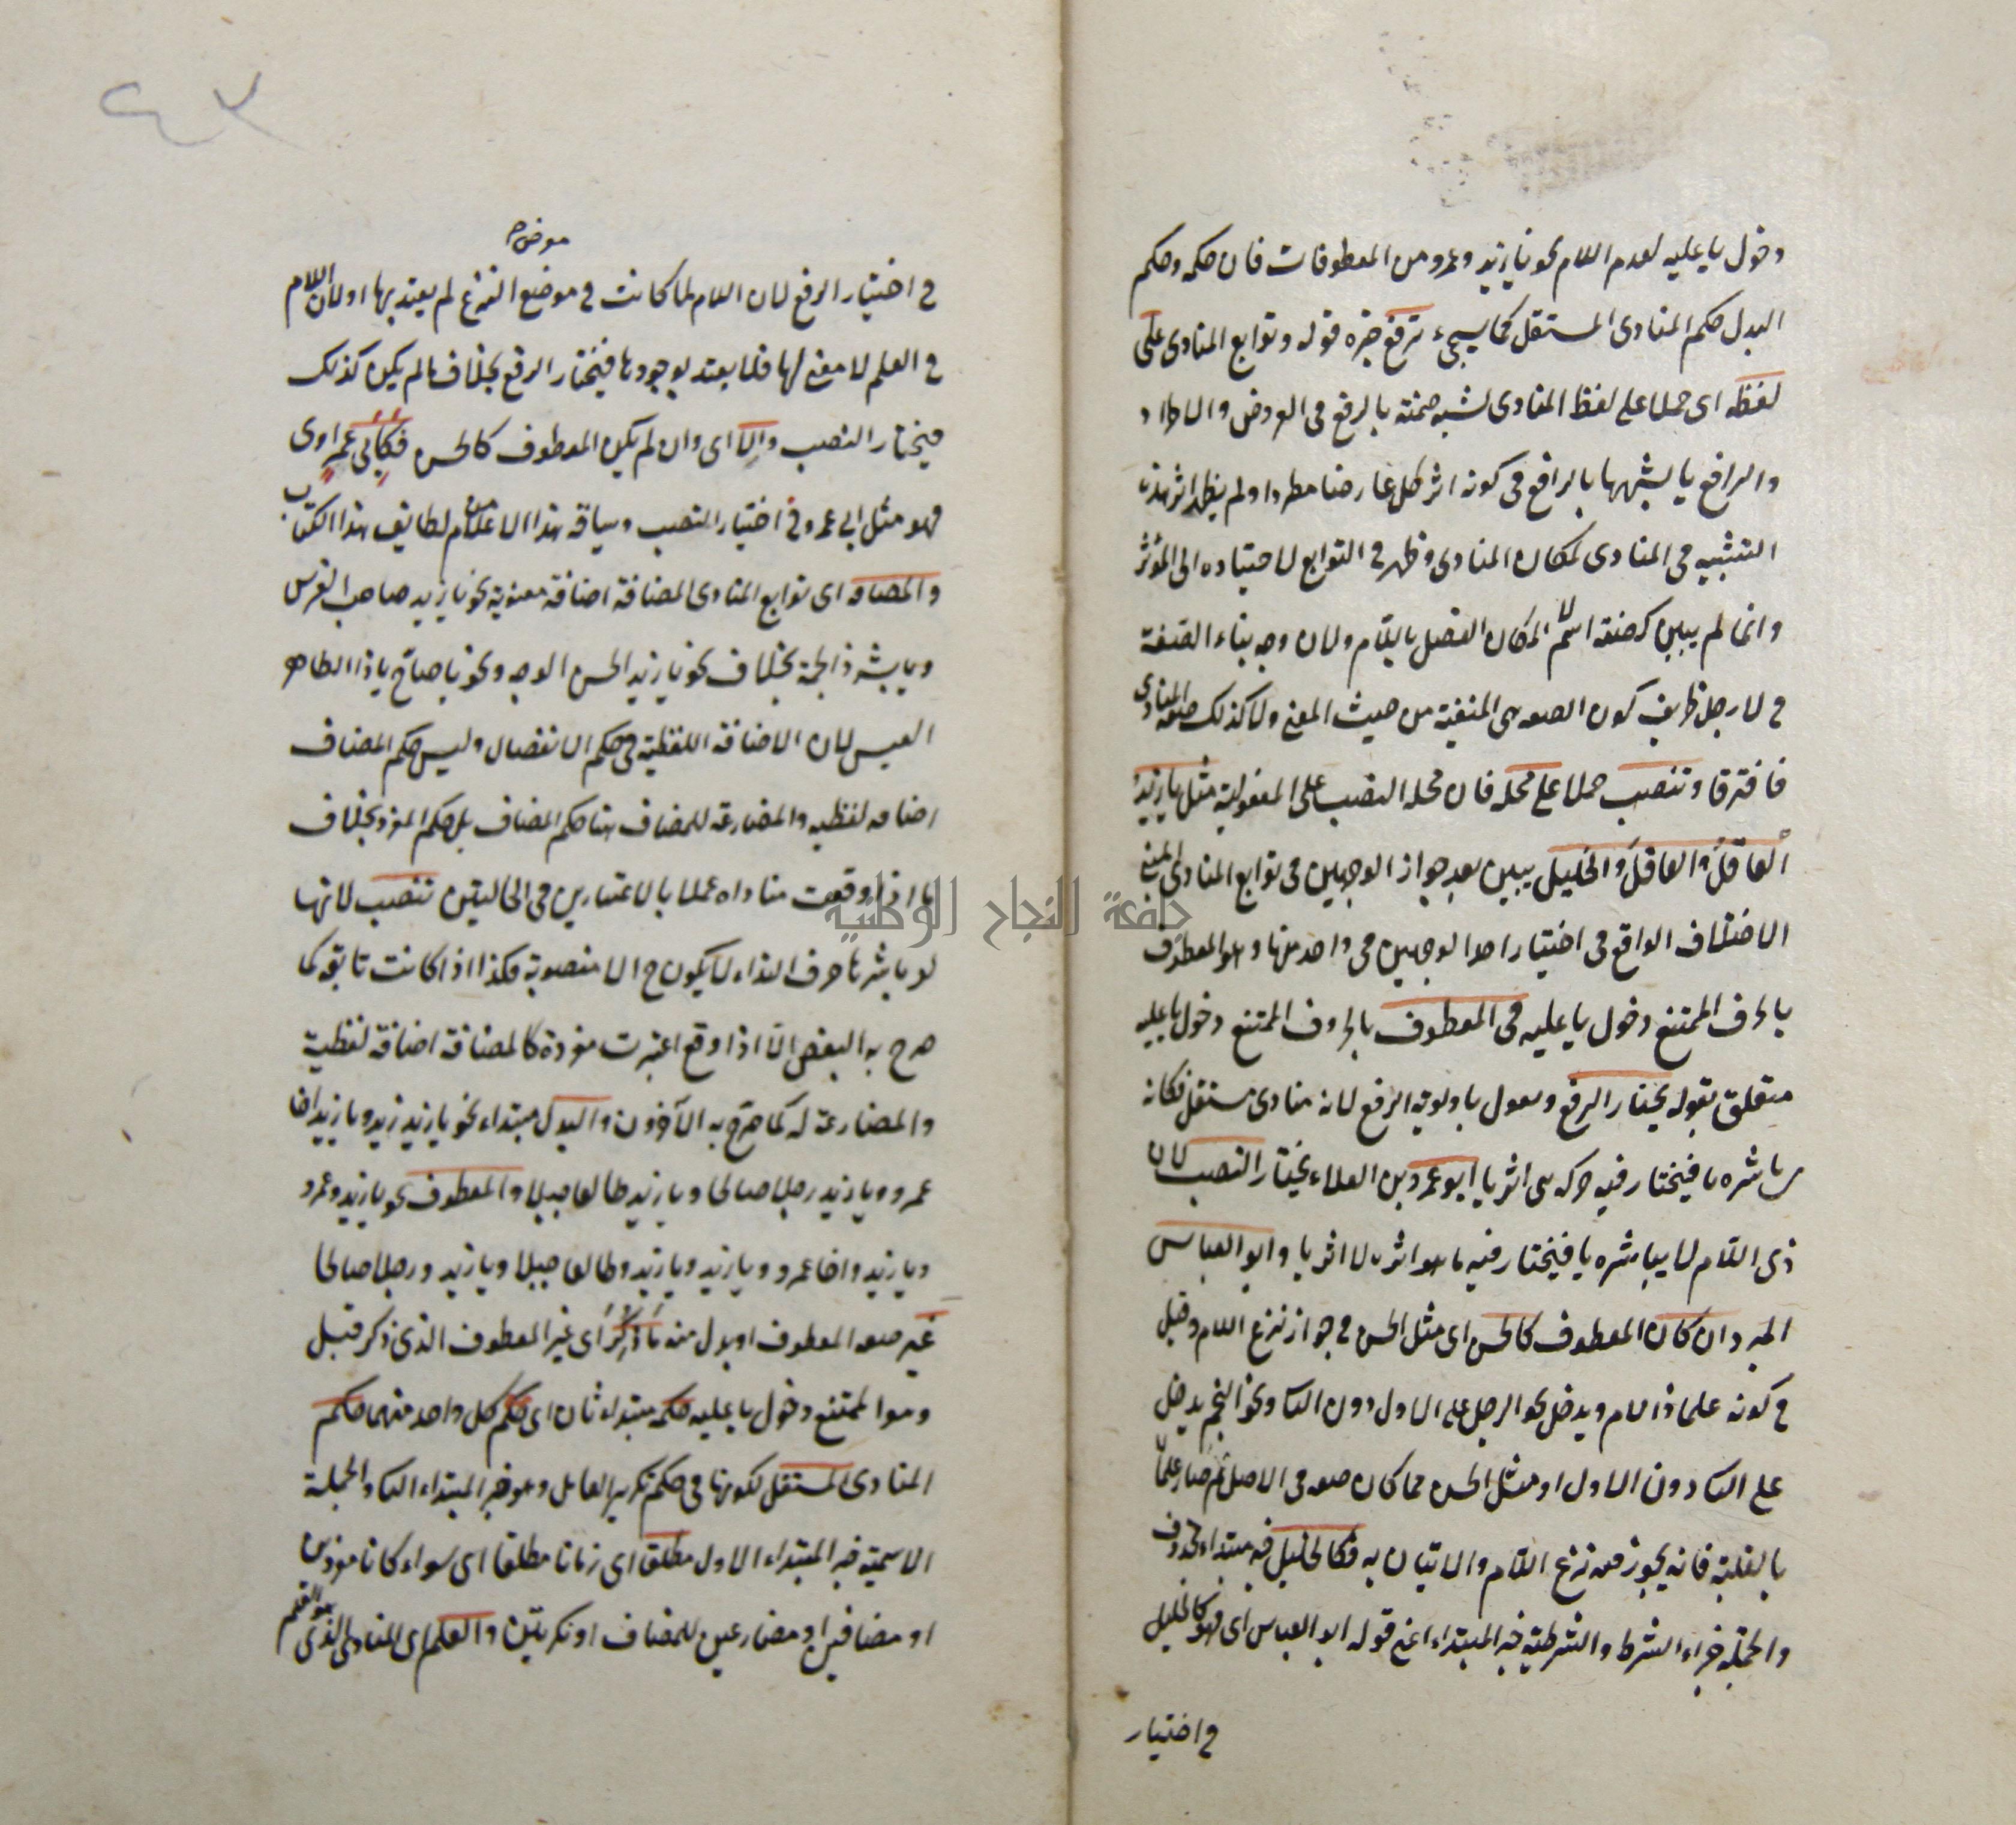 دخول يا عليه لعدم اللام نحو يا زيد وعمرو من المعطوفات فان حكمه وحكم
البدل حكم المنادى المستقل كما سيجىء ترفع خبره قوله وتوابع المنادى على
لفظه اى حملا على لفظ المنادى لشبه ضمته بالرفع فى العروض والاطراد
والرافع يا لشبهها بالرافع فى كونه اثر كل عارضا مطردا ولم يظهر اثر هذا
التشبيه فى المنادى لمكان المنادى وظهر فى التوابع لاحتياده الى المؤثر
وانما لم يبين كصفة اسم لا لمكان الفصل باللام ولان وجه بناء الصفة
فى لا رجل ظريف كون الصفه هى المنفية من حيث المعنى ولا كذلك صفة المنادى
فافترقا وتنصب حملا على محله فان محله النصب على المفعولية مثل يا زيد
العاقل والعاقل والخليل يبين بعد جواز الوجهين فى توابع المنادى المبنى
الاختلاف الواقع فى اختيار احد الوجهين فى واحد منها وهو المعطوف
بالحرف الممتنع دخول يا عليه فى المعطوف بالحروف الممتنع دخول يا عليه
متعلق بقوله يختار الرفع ويقول باولوية الرفع لانه منادى مستقل فكانه
باشره يا فيختار فيه حركه هى اثر يا ابو عمرو بن العلاء يختار النصب لان
ذى اللام لا يباشره يا فيختار فيه ما هو اثره لا اثر يا وابو العباس
المبرد ان كان المعطوف كالحسن اى مثل الحسن فى جواز نزع اللام وقيل
فى كونه علما ذا لام ويدخل نحو الرجل على الاول دون الثانى ونحو النجم يدخل
على الثانى دون الاول او مثل الحسن مما كان صفه فى الاصل ثم صار علما
بالغلبة فانه يجوز فيه نزع اللام والاتيان به فكالخليل خبر مبتداء محذوف
والجملة جزاء الشرط والشرطية خبر المبتداء اعنى قوله ابو العباس اى فهو كالخليل
فى اختيار
٤٣
موضع
فى اختيار الرفع لان اللام لما كانت فى موضع النزع لم يعتد بها او لان اللام
فى العلم لا معنى لها فلا يعتد بوجودها فيختار الرفع بخلاف ما لم يكن كذلك
فيختار النصب والا اى وان لم يكن المعطوف كالحسن فكابى عمرو اى
فهو مثل ابى عمرو فى اختيار النصب وسياقه هذا الاعلام من لطايف هذا الكتاب
والمضافة اى توابع المنادى المضافة اضافة معنوية نحو يا زيد صاحب الفرس
ويا بشر ذا الجمة بخلاف نحو يا زيد الحسن الوجه ونحو يا صاح يا ذا الضامر
العيس لان الاضافة اللفظية فى حكم الانفصال وليس حكم المضاف
اضافه لفظيه والمضارعة للمضاف هنا حكم المضاف بل حكم المفرد بخلاف
ما اذا وقعت مناداه عملا بالاعتبارين فى الحالتين تنصب لانها
لو باشرها حرف النداء لا يكون ح الا منصوبة فكذا اذا كانت تابعة كما
صرح به البعض الا اذا وقع اعتبرت مفردة كالمضافة اضافة لفظية
والمضارعة له كما صرح به الآخرون والبدل مبتداء نحو يا زيد زيد ويا زيد اخا
عمرو ويا زيد رجلا صالحا ويا زيد طالعا جبلا والمعطوف نحو يا زيد وعمرو
ويا زيد واخا عمرو ويا زيد وزيد ويا زيد وطالعا جبلا ويا زيد ورجلا صالحا
غير صفه المعطوف او بدل منه ما ذكر اى غير المعطوف الذى ذكر قبل
وهو الممتنع دخول يا عليه حكمه مبتداء ثان اى حكم كل واحد منهما حكم
المنادى المستقل لكونها فى حكم تكرير العامل وهو خبر المبتداء الثانى والجملة
الاسمية خبر المبتداء الاول مطلقا اى زمانا مطلقا اى سواء كانا مفردين
او مضافين او مضارعين للمضاف او نكرتين والعلم اى المنادى الذى هو العلم
جامعة النجاح الوطنية